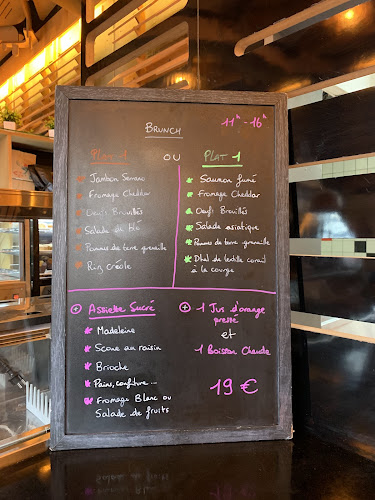 11h - 16h
BRUNCH
Plat 1
OU
PLAT 1
Jambon Serrano
Fromage Cheddar
Oeufs Brouillés
Salade de blé
Pommes de terre grenaille
Riz créole
Saumon fumé
Fromage Cheddar
Oeufs Brouillés
Salade asiatique
Pommes de terre grenaille
Dhal de lentille corail
à la courge
+ Assiette Sucré
Madeleine
Scone au raisin
Brioche
Pain, confiture ...
Fromage Blanc ou
Salade de fruits
+ 1 Jus d'orange
pressé
et
1 Boisson Chaude
19 €